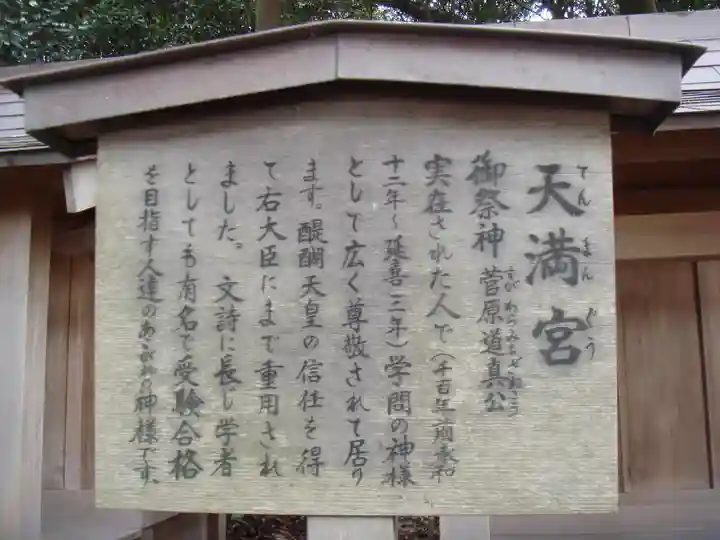 天満宮
てん まん ぐう
御祭神 菅原道真公
すが わら みち ざね こう
実在された人で(千百年前承和
十二年~延喜三年)学問の神様
として広く尊敬されて居り
ます。醍醐天皇の信任を得
て右大臣にまで重用され
ました。文詩に長し学者
としても有名で受験合格
を目指す人達のあこがれの神様です。